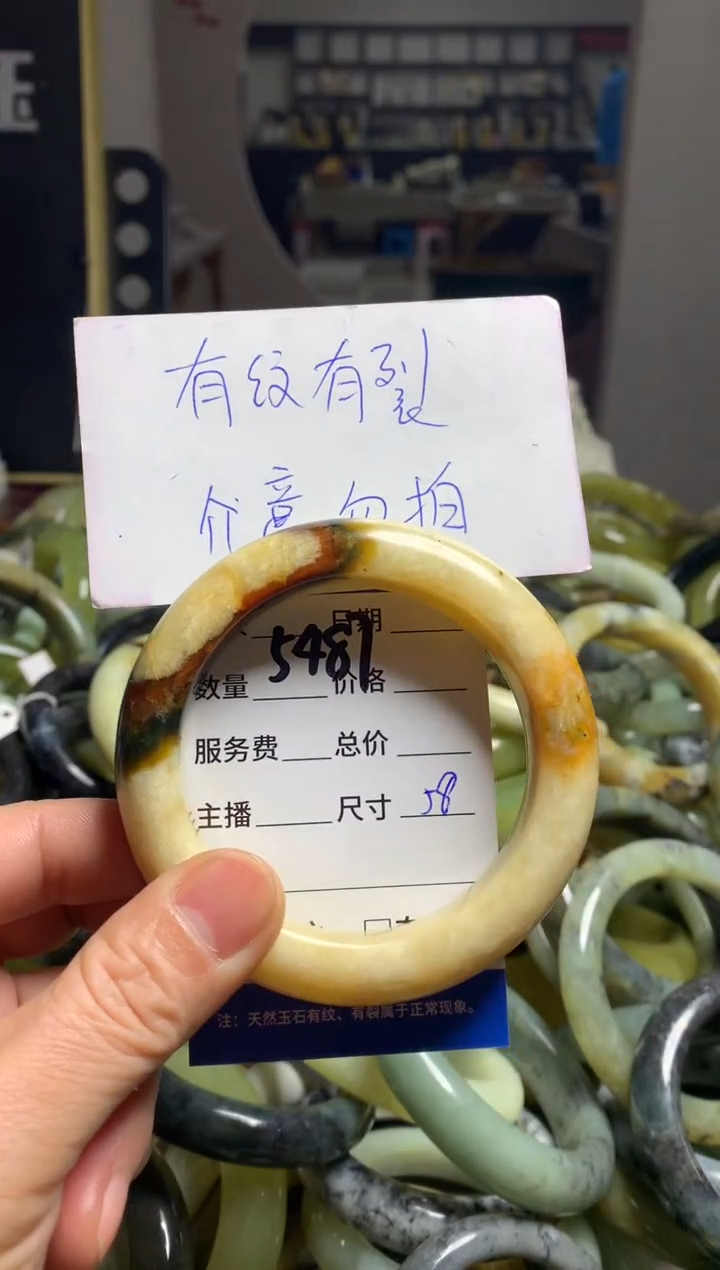 玉
有纹有裂
介意勿拍
日期
5481
数量 价格
服务费 总价
主播 尺寸 58
注：天然玉石有纹、有裂属于正常现象。